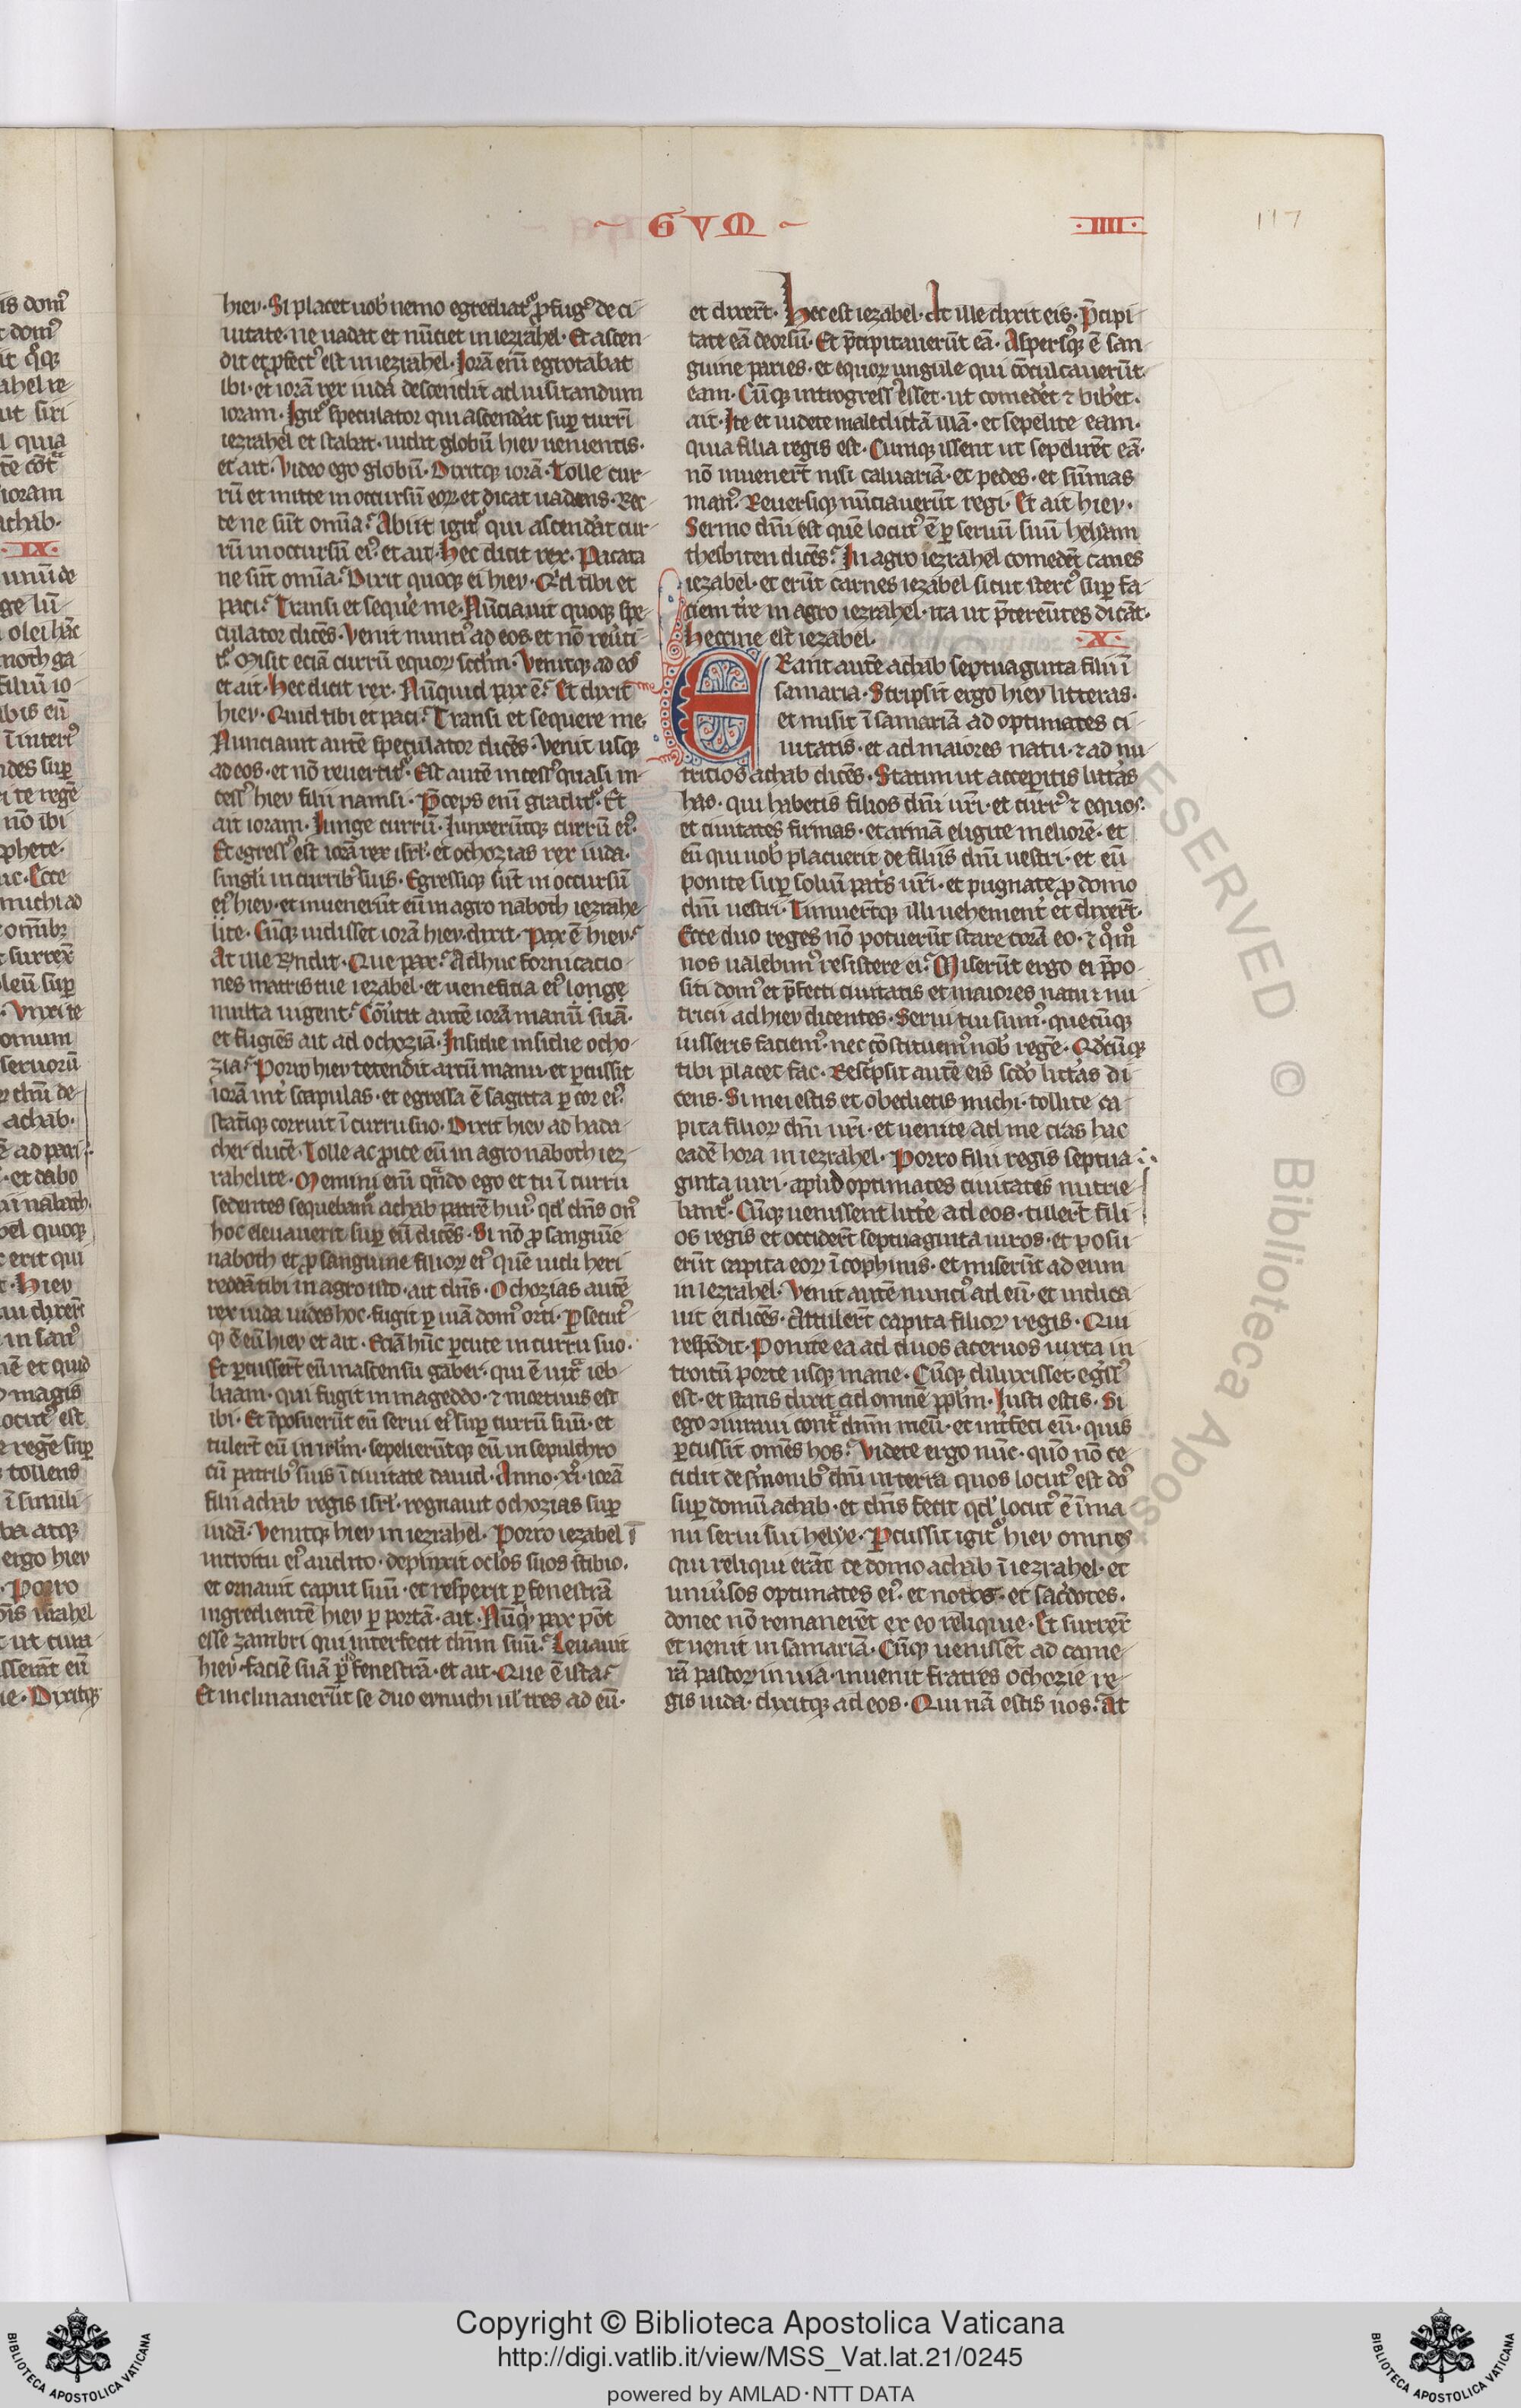 ~ GVM ~
· IIII ·
117
hiev · Si placet uob̾ nemo egrediat᷑ ꝓfug᷒ de ci-
uitate · ne uadat et nu̅ciet in iezrahel · Et ascen-
dit et ꝓfect᷒ est in iezrahel · Iora̅ eni̅ egrotabat
ibi · et iora̅ rex iuda descendit ad uisitandum
ioram · Igit᷑ speculator qui ascenda̾t sup̱ turri̅
iezrahel et stabat · uidit globu̅ hiev uenientis ·
et ait · Video ego globu̅ · Dixitqꝫ iora̅ · Tolle cur-
ru̅ et mitte in occursu̅ eoꝝ et dicat uadens · Rec-
te ne su̅t om̅ia · Abiit igit᷑ qui ascenda̾t cur-
ru̅ in occursu̅ ei᷒ et ait · Hec dicit rex · Pacata
ne su̅t om̅ia · Dixit quoqꝫ ei hiev · Qͥd tibi et
paci · Transi et seque̾ me · Nu̅ciauit quoqꝫ spe-
culator dice̅s · Venit nunti᷒ ad eos · et no̅ reu̾ti-
t᷑ · Misit ecia̅ curru̅ equoꝝ sc̅d̅m · Venitqꝫ ad eos
et ait · Hec dicit rex · Nu̅quid pax e̅ · Et dixit
hiev · Quid tibi et paci · Transi et sequere me ·
Nunciauit aute̅ speculator dice̅s · Venit usqꝫ
ad eos · et no̅ reuertit᷑ · Est aute̅ incess᷒ quasi in-
cess᷒ hiev filii namsi · P̅ceps eni̅ gradit᷑ · Et
ait ioram · Iunge curru̅ · Iunxeru̅tqꝫ curru̅ ei᷒ ·
Et egress᷒ est iora̅ rex isrl̅ · et ochozias rex iuda ·
sing̾li in currib᷒ suis · Egressiqꝫ su̅t in occursu̅
ei᷒ hiev · et inueneru̅t eu̅ in agro naboth iezrahe-
lite · Cu̅qꝫ uidisset iora̅ hiev · dixit · Pax e̅ hiev ·
At ille Rn̅dit · Que pax · Adhuc fornicacio-
nes matris tue iezabel · et uenefitia ei᷒ longe
multa uigent · Co̅u̾tit aute̅ iora̅ manu̅ sua̅ ·
et fugie̅s ait ad ochozia̅ · Insidie insidie ocho-
zia · Porro hiev tetendit arcu̅ manu · et ꝑcussit
iora̅ int̾ scapulas · et egressa e̅ sagitta ꝑ cor ei᷒ ·
stati̅qꝫ corruit i̅ curru suo · Dixit hiev ad bada-
cher duce̅ · Tolle ac ꝓice eu̅ in agro naboth iez-
rahelite · Memini eni̅ qn̅do ego et tu i̅ curru
sedentes sequebam᷑ achab patre̅ hui᷒ · qd̾ dn̅s on᷒
hoc eleuauerit sup̱ eu̅ dice̅s · Si no̅ ꝓ sangui̅e
naboth et ꝓ sanguine filioꝝ ei᷒ que̅ uidi heri
redda̅ tibi in agro isto · ait dn̅s · Ochozias aute̅
rex iuda uides hoc · fugit ꝑ uia̅ dom᷒ orti · Ꝑsecut᷒
qꝫ e̅ eu̅ hiev et ait · Ecia̅ hu̅c ꝑcute in curru suo ·
Et ꝑcusser̅t eu̅ in ascensu gaber · qui e̅ iuxͣ ieb-
laam · qui fugit in mageddo · ⁊ mortuus est
ibi · Et i̅posueru̅t eu̅ serui ei᷒ sup̱ curru̅ suu̅ · et
tuler̅t eu̅ in irl̅m · sepelieru̅tqꝫ eu̅ in sepulchro
cu̅ patrib᷒ suis i̅ ciuitate dauid · Anno · xi̊ · iora̅
filii achab regis isrl̅ · regnauit ochozias sup̱
iuda̅ · Venitqꝫ hiev in iezrahel · Porro iezabel i̅
introitu ei᷒ audito · depinxit oc̾los suos stibio ·
et ornauit caput suu̅ · et respexit ꝑ fenestra̅
ingrediente̅ hiev ꝑ porta̅ · ait · Nu̅qͥ pax po̅t
esse zambri qui interfecit dn̅m suu̅ · Leuauit
hiev · facie̅ sua̅ ꝑ fenestra̅ · et ait · Que e̅ ista ·
Et inclinaueru̅t se duo evnuchi ul̾ tres ad eu̅ ·
et dixer̅t · Hec est iezabel · At ille dixit eis · P̅cipi-
tate ea̅ deorsu̅ · Et p̅cipitaueru̅t ea̅ · Aspers᷒qꝫ e̅ san-
guine paries · et equoꝝ ungule qui co̅culcaueru̅t
eam · Cu̅qꝫ introgress᷒ esset · ut comede̾t ⁊ bibe̾t ·
ait · Ite et uidete maledicta̅ illa̅ · et sepelite eam ·
quia filia regis est · Cumqꝫ issent ut sepelire̅t ea̅ ·
no̅ inuener̅t nisi caluaria̅ · et pedes · et su̅mas
man᷒ · Reuersiqꝫ nu̅ciaueru̅t regi · Et ait hiev ·
Sermo dn̅i est que̅ locut᷒ e̅ ꝑ seruu̅ suu̅ helyam
thesbiten dice̅s · In agro iezrahel comede̅t canes
iezabel · et eru̅t carnes iezabel sicut sterc᷒ sup̱ fa-
ciem tr̅e in agro iezrahel · ita ut p̅tereu̅tes dica̅t ·
Heccine est iezabel ·
· X ·
ERant aute̅ achab septuaginta filii i̅
samaria · Scripsit ergo hiev litteras ·
et misit i̅ samaria̅ ad optimates ci-
uitatis · et ad maiores natu · ⁊ ad nu-
tritios achab dice̅s · Statim ut acceperitis litt̾as
has · qui habetis filios dn̅i ur̅i · et curr᷒ ⁊ equos ·
et ciuitates firmas · et arma̅ eligite meliore̅ · et
eu̅ qui uob̾ placuerit de filiis dn̅i uestri · et eu̅
ponite sup̱ soliu̅ patͥs ur̅i · et pugnate ꝓ domo
dn̅i uestri · Timuer̅tqꝫ illi uehement̾ et dixer̅t ·
Ecce duo reges no̅ potueru̅t stare cora̅ eo · ⁊ qͦmͦ
nos ualebim᷒ resistere ei · Miseru̅t ergo ei p̅po-
siti dom᷒ et p̅fecti ciuitatis et maiores natu ⁊ nu-
tricii ad hiev dicentes · Serui tui sum᷒ · quecu̅qꝫ
iusseris faciem᷒ · nec co̅stituem᷒ nob̾ rege̅ · Qd̾cu̅qꝫ
tibi placet fac · Resc̾psit aute̅ eis sc̅do litt̾as di-
cens · Si mei estis et obedietis michi · tollite ca-
pita filioꝝ dn̅i ur̅i · et uenite ad me cras hac
eade̅ hora in iezrahel · Porro filii regis septua-
ginta uiri · apud optimates ciuitates nutrie-
bant᷑ · Cu̅qꝫ uenissent litt̾e ad eos · tuler̅t fili-
os regis et occider̅t septuaginta uiros · et posu-
eru̅t capita eoꝝ i̅ cophinis · et miseru̅t ad eum
in iezrahel · Venit aute̅ nunci᷒ ad eu̅ · et indica-
uit ei dice̅s · Attuler̅t capita filioꝝ regis · Qui
respo̅dit · Ponite ea ad duos aceruos iuxta in-
troitu̅ porte usqꝫ mane · Cu̅qꝫ diluxisset · eg̾ss᷒
est · et stans dixit ad omne̅ pp̅l̅m · Iusti estis · Si
ego ꝯiuraui contͣ dn̅m meu̅ · et int̾feci eu̅ · quis
ꝑcussit om̅es hos · Videte ergo nu̅c · quo̅ no̅ ce-
cidit de s̾monib᷒ dn̅i in terra quos locut᷒ est do᷒
sup̱ domu̅ achab · et dn̅s fecit qd̾ locut᷒ e̅ i̅ ma-
nu serui sui helye · Ꝑcussit igit᷑ hiev omnes
qui reliqui era̅t de domo achab i̅ iezrahel · et
uniu̾sos optimates ei᷒ · et notos · et sac̾dotes ·
donec no̅ remanere̅t ex eo reliquie · Et surrex̅
et uenit in samaria̅ · Cu̅qꝫ uenisse̅t ad came-
ra̅ pastoꝝ in uia · inuenit fratres ochozie re-
gis iuda · dixitqꝫ ad eos · Qui na̅ estis uos · At
Copyright © Biblioteca Apostolica Vaticana
http://digi.vatlib.it/view/MSS_Vat.lat.21/0245
powered by AMLAD·NTT DATA